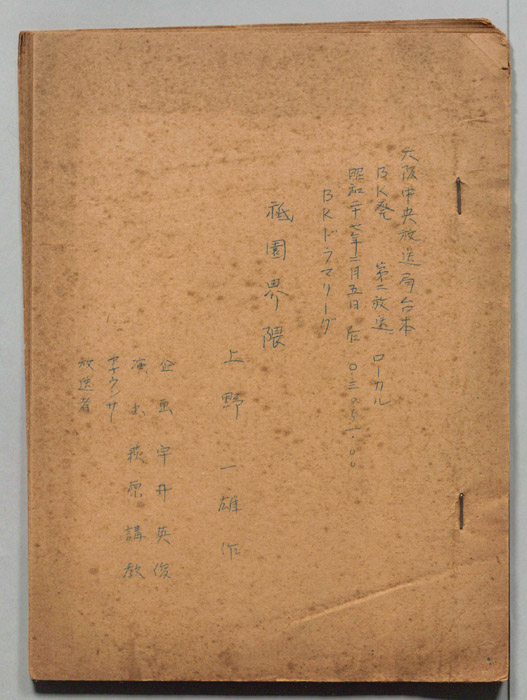 大阪中央放送局台本
BK発 第二放送 ローカル
昭和二十七年二月五日 后 〇.三〇〜一.〇〇
BKドラマリーグ
祇園界隈
上野一雄作
企画 宇井英俊
演出 萩原講教
アナウンサー
放送者